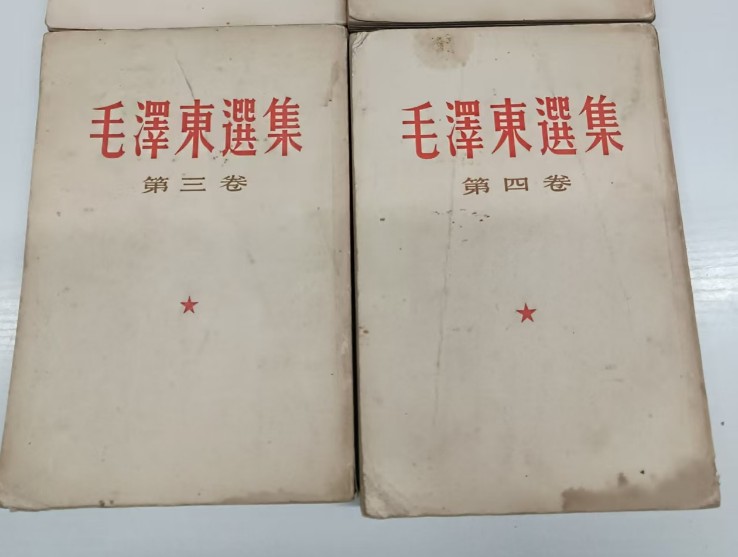 毛澤東選集
第三卷
毛澤東選集
第四卷